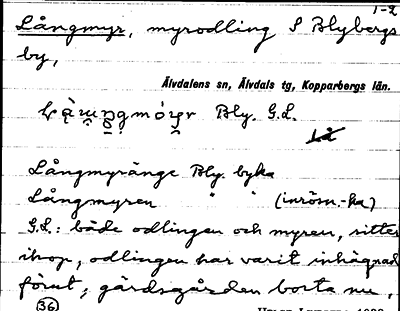 1-2
Långmyr, myrodling S Blybergs
by,
Älvdalens sn, Älvdals tg, Kopparbergs län.
Bly. G.L.
Långmyränge Bly. byka
Långmyren " " (inrösn.-ka)
G.L.: både odlingen och myren, sitter
ihop, odlingen har varit inhägnad
förut, gärdsgården borta nu,
36